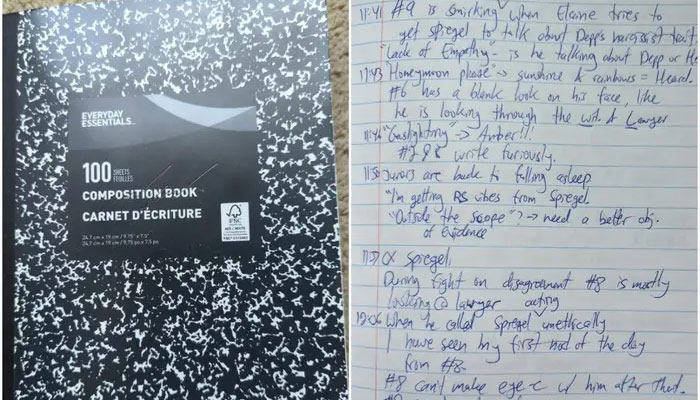 EVERYDAY
ESSENTIALS
100 SHEETS
FEUILLES
COMPOSITION BOOK
CARNET D'ÉCRITURE
24.7 cm x 19 cm / 9.75" x 7.5"
24,7 cm x 19 cm / 9,75 po x 7,5 po
FSC
11:41 #9 is smirking when Elaine tries to
get spiegel to talk about Depp's narcissist trait.
"Lack of Empathy" - is he talking about Depp or He
11:43 "Honeymoon phase" → sunshine & rainbows = Heard.
#6 has a blank look on his face, like
he is looking through the wit. & Lawyer
"Gaslighting" → Amber!!!
#2 & 8 write furiously.
11:50 Jurors are back to falling asleep.
"I'm getting RS vibes from Spiegel.
"Outside the scope" → need a better obj.
of evidence
Spiegel
During fight on disagreement #8 is mostly
looking @ lawyer
12:06 When he called Spiegel unethically
I have seen my first nod of the day
from #8.
#8 can't make eye-c w/ him after that.